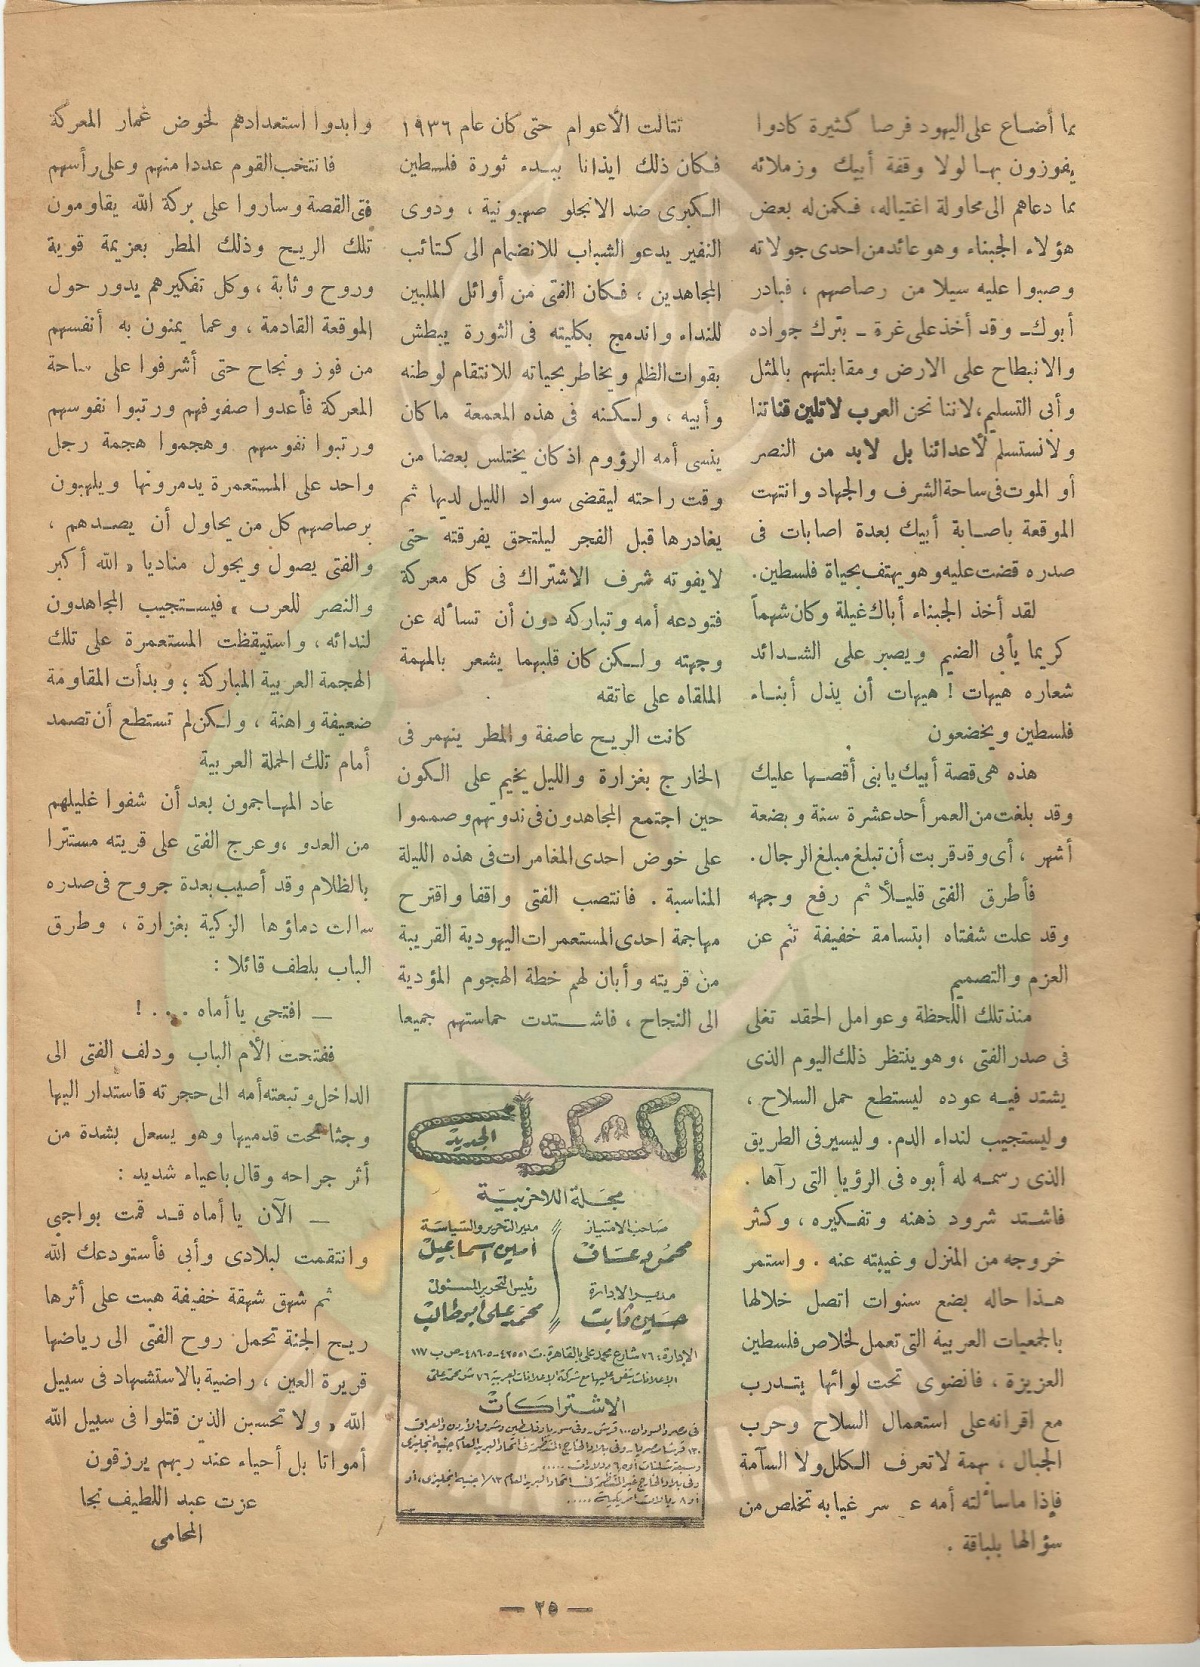 مما أضاع على اليهود فرصا كثيرة كادوا
يفوزون بها لولا وقفة أبيك وزملائه
مما دعاهم الى محاولة اغتياله، فكمن له بعض
هؤلاء الجبناء وهو عائد من احدى جولاته
وصبوا عليه سيلا من رصاصهم ، فبادر
أبوك ــ وقد أخذ على غرة ــ بترك جواده
والانبطاح على الارض ومقابلتهم بالمثل
وأبى التسليم، لاننا نحن العرب لا تلين قناتنا
ولا نستسلم لأعدائنا بل لا بد من النصر
أو الموت فى ساحة الشرف والجهاد وانتهت
الموقعة باصابة أبيك بعدة اصابات فى
صدره قضت عليه وهو يهتف بحياة فلسطين.
لقد أخذ الجبناء أباك غيلة وكان شهماً
كريما يأبى الضيم ويصبر على الشدائد
شعاره هيهات ! هيهات أن يذل أبناء
فلسطين ويخضعون
هذه هى قصة أبيك يا بنى أقصها عليك
وقد بلغت من العمر أحد عشرة سنة وبضعة
أشهر ، أى وقد قربت أن تبلغ مبلغ الرجال.
فأطرق الفتى قليلاً ثم رفع وجهه
وقد علت شفتاه ابتسامة خفيفة تنم عن
العزم والتصميم
منذ تلك اللحظة وعوامل الحقد تغلى
فى صدر الفتى ، وهو ينتظر ذلك اليوم الذى
يشتد فيه عوده ليستطع حمل السلاح ،
وليستجيب لنداء الدم. وليسير فى الطريق
الذى رسمه له أبوه فى الرؤيا التى رآها .
فاشتد شرود ذهنه وتفكيره ، وكثر
خروجه من المنزل وغيبته عنه . واستمر
هذا حاله بضع سنوات اتصل خلالها
بالجمعيات العربية التى تعمل لخلاص فلسطين
العزيزة ، فانضوى تحت لوائها يتدرب
مع اقرانه على استعمال السلاح وحرب
الجبال ، بهمة لا تعرف الكلل ولا السآمة
فإذا ما سألته أمه سر غيابه تخلص من
سؤالها بلباقة .
تتالت الأعوام حتى كان عام ١٩٣٦
فكان ذلك ايذانا ببدء ثورة فلسطين
الكبرى ضد الانجلو صهيونية ، ودوى
النفير يدعو الشباب للانضمام الى كتائب
المجاهدين ، فكان الفتى من أوائل الملبين
للنداء واندمج بكليته فى الثورة يبطش
بقوات الظلم ويخاطر بحياته للانتقام لوطنه
وأبيه ، ولكنه فى هذه المعمعة ما كان
ينسى أمه الرؤوم اذ كان يختلس بعضا من
وقت راحته ليقضى سواد الليل لديها ثم
يغادرها قبل الفجر ليلتحق بفرقته حتى
لا يفوته شرف الاشتراك فى كل معركة
فتودعه أمه وتباركه دون أن تسأله عن
وجهته ولكن كان قلبهما يشعر بالمهمة
الملقاه على عاتقه
كانت الريح عاصفة والمطر ينهمر فى
الخارج بغزارة والليل يخيم على الكون
حين اجتمع المجاهدون فى ندوتهم وصمموا
على خوض احدى المغامرات فى هذه الليلة
المناسبة . فانتصب الفتى واقفا واقترح
مهاجمة احدى المستعمرات اليهودية القريبة
من قريته وأبان لهم خطة الهجوم المؤدية
الى النجاح ، فاشتدت حماستهم جميعا
الكشكول
الجديد
مجلة اللاحزبية
صاحب الامتياز
محمود عساف
مدير الادارة
حسين ثابت
مدير التحرير والسياسة
أمين اسماعيل
رئيس التحرير المسئول
محمد على أبو طالب
الإدارة، ٧٦ شارع محمد على بالقاهرة. ت ٤٢٥٥١ - ٤٨٦٠٥ - ص ب ١١٧
الاعلانات يتفق عليها مع شركة الاعلانات العربية ٧٦ ش محمد على
الاشتراكات
فى مصر والسودان ١٠٠ قرش. وفى سوريا وفلسطين وشرق الأردن والعراق
وابدوا استعدادهم لخوض غمار المعركة
فانتخب القوم عددا منهم وعلى رأسهم
فتى القصة وساروا على بركة الله يقاومون
تلك الريح وذلك المطر بعزيمة قوية
وروح وثابة ، وكل تفكيرهم يدور حول
الموقعة القادمة ، وعما يمنون به أنفسهم
من فوز ونجاح حتى أشرفوا على ساحة
المعركة فأعدوا صفوفهم ورتبوا نفوسهم
ورتبوا نفوسهم وهجموا هجمة رجل
واحد على المستعمرة يدمرونها ويلهبون
برصاصهم كل من يحاول أن يصدهم ،
والفتى يصول ويجول مناديا « الله أكبر
والنصر للعرب » فيستجيب المجاهدون
لندائه ، واستيقظت المستعمرة على تلك
الهجمة العربية المباركة ؛ وبدأت المقاومة
ضعيفة واهنة ، ولكن لم تستطع أن تصمد
أمام تلك الحملة العربية
عاد المهاجمون بعد أن شفوا غليلهم
من العدو ، وعرج الفتى على قريته مستترا
بالظلام وقد أصيب بعدة جروح فى صدره
سالت دماؤها الزكية بغزارة ، وطرق
الباب بلطف قائلا :
ــ افتحى يا أماه . . . !
ففتحت الأم الباب ودلف الفتى الى
الداخل وتبعته أمه الى حجرته فاستدار اليها
وجثا تحت قدميها وهو يسعل بشدة من
أثر جراحه وقال باعياء شديد :
ــ الآن يا أماه قد قمت بواجبى
وانتقمت لبلادى وأبى فأستودعك الله
ثم شهق شهقة خفيفة هبت على أثرها
ريح الجنة تحمل روح الفتى الى رياضها
قريرة العين ، راضية بالاستشهاد فى سبيل
الله « ولا تحسبن الذين قتلوا فى سبيل الله
أمواتا بل أحياء عند ربهم يرزقون
عزت عبد اللطيف نجا
المحامى
— ٢٥ —